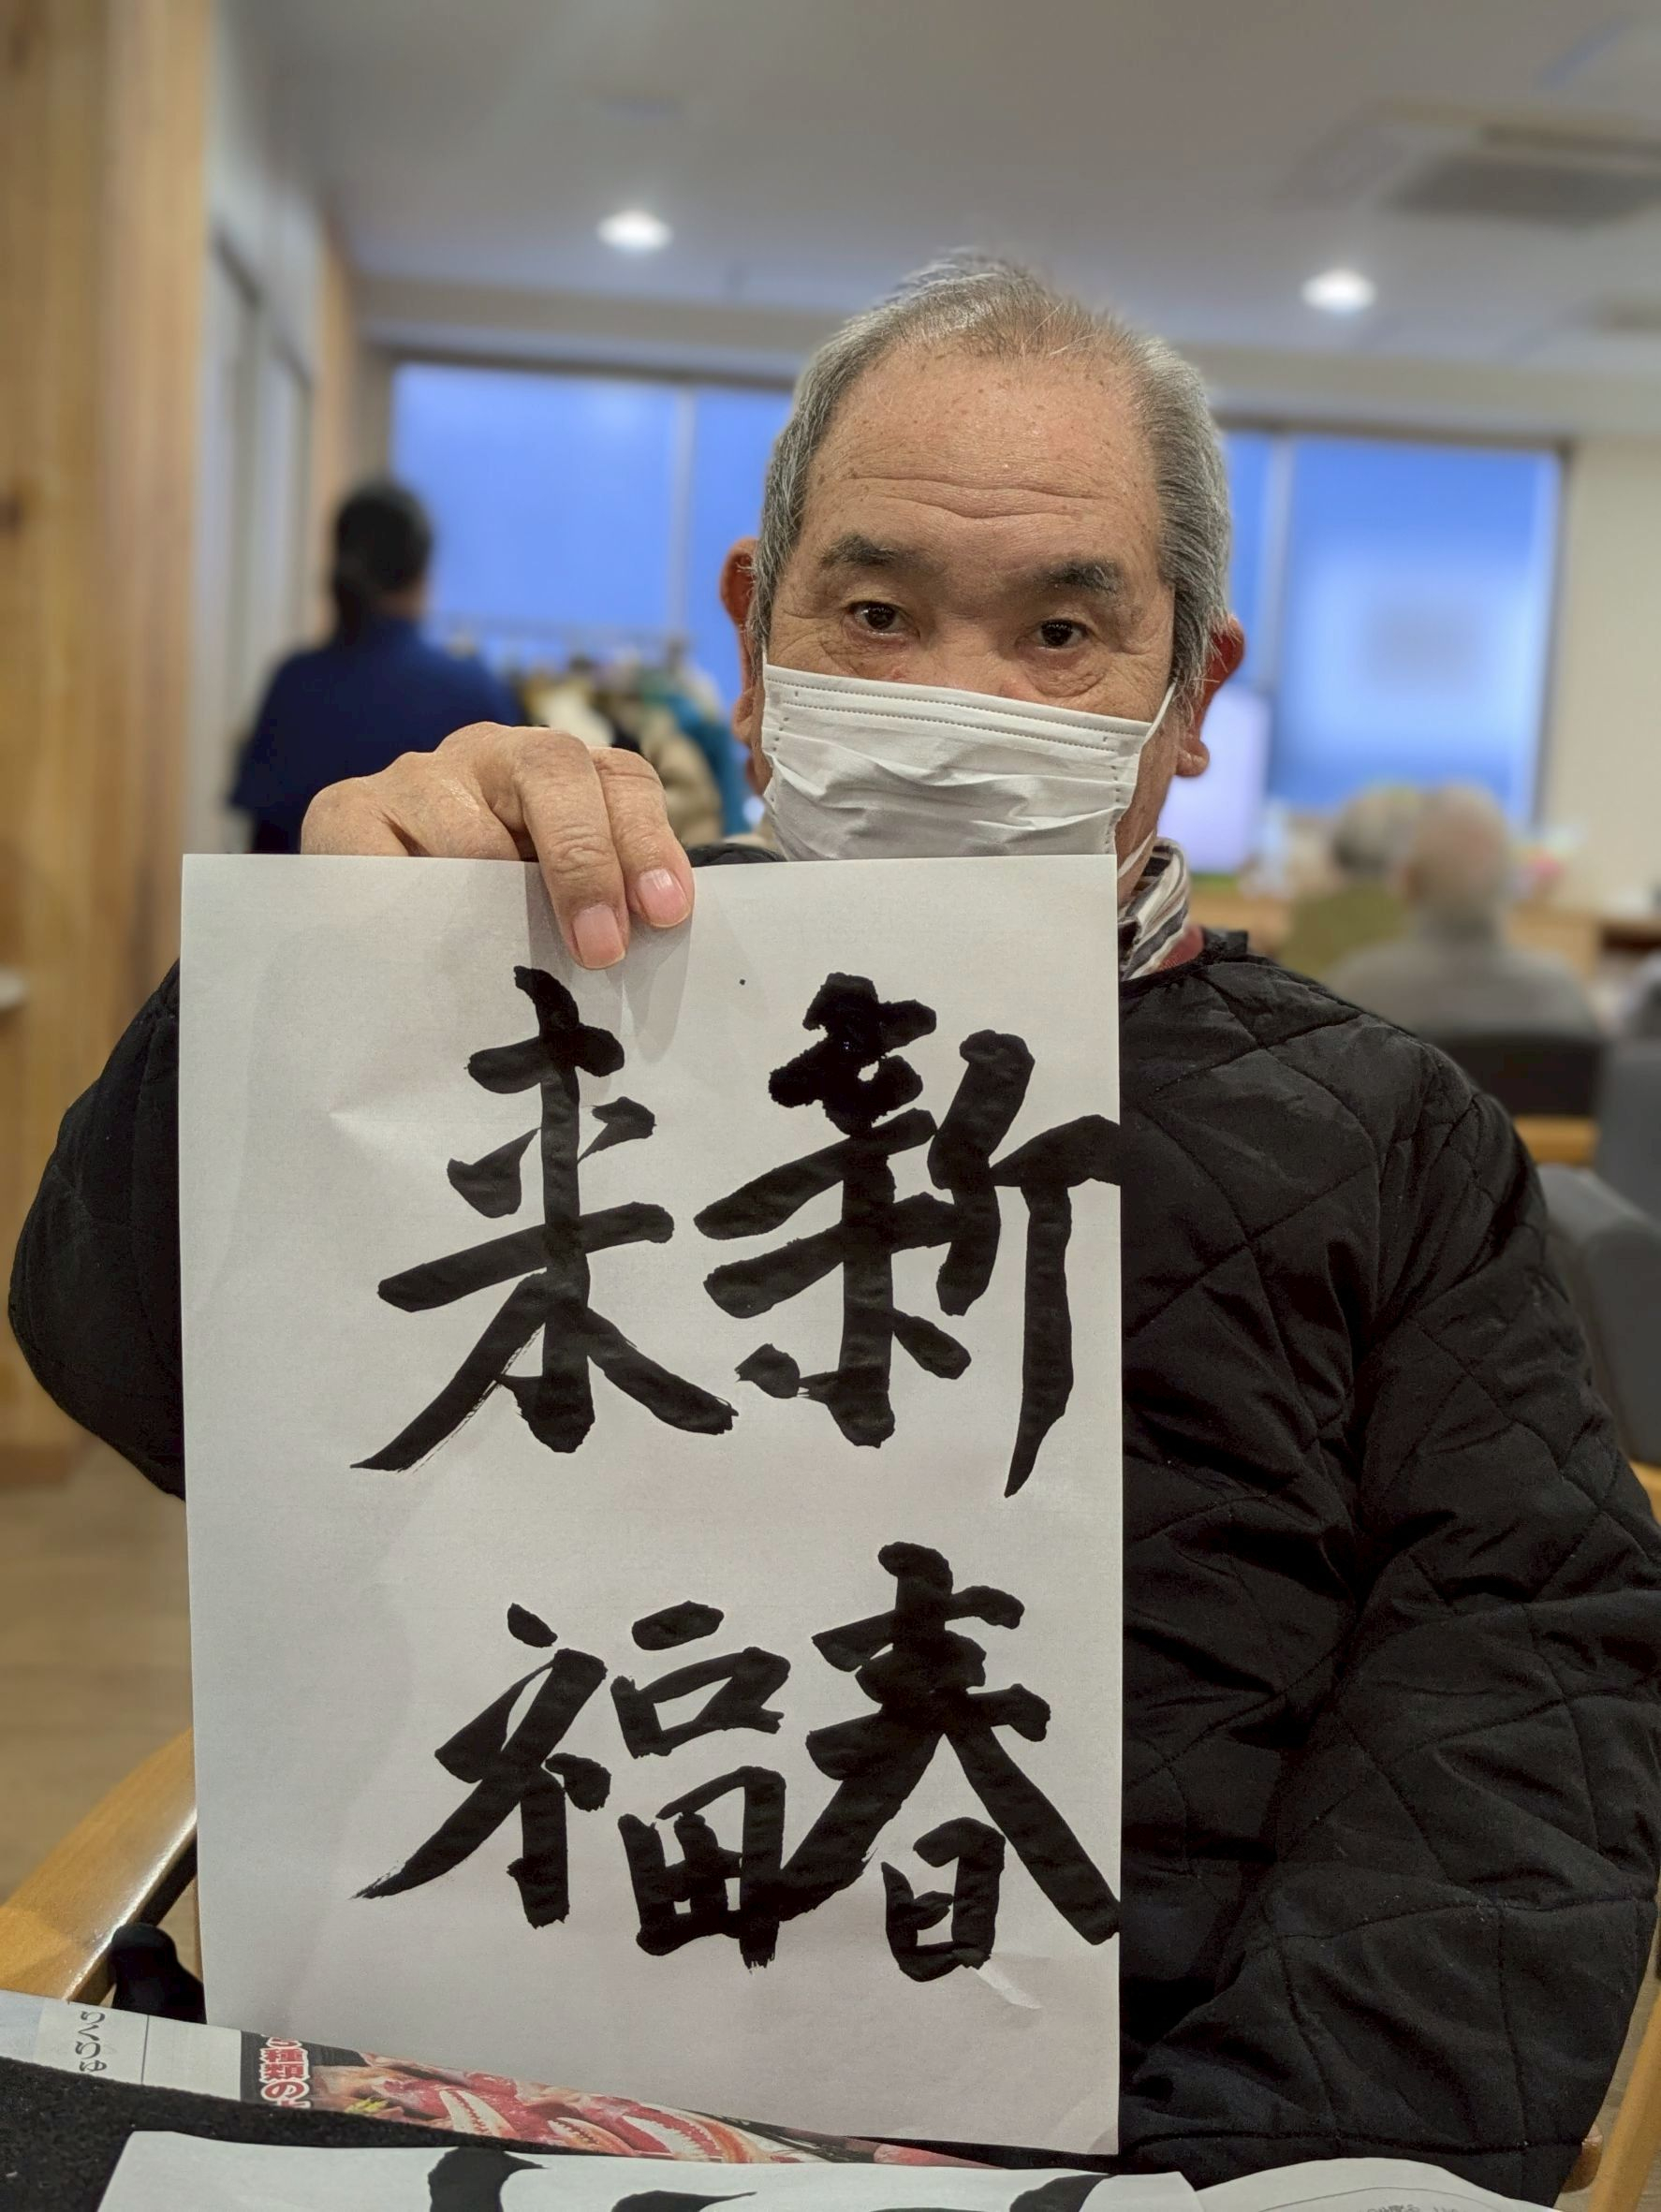 新春
来福
りくりゅ
5種類の